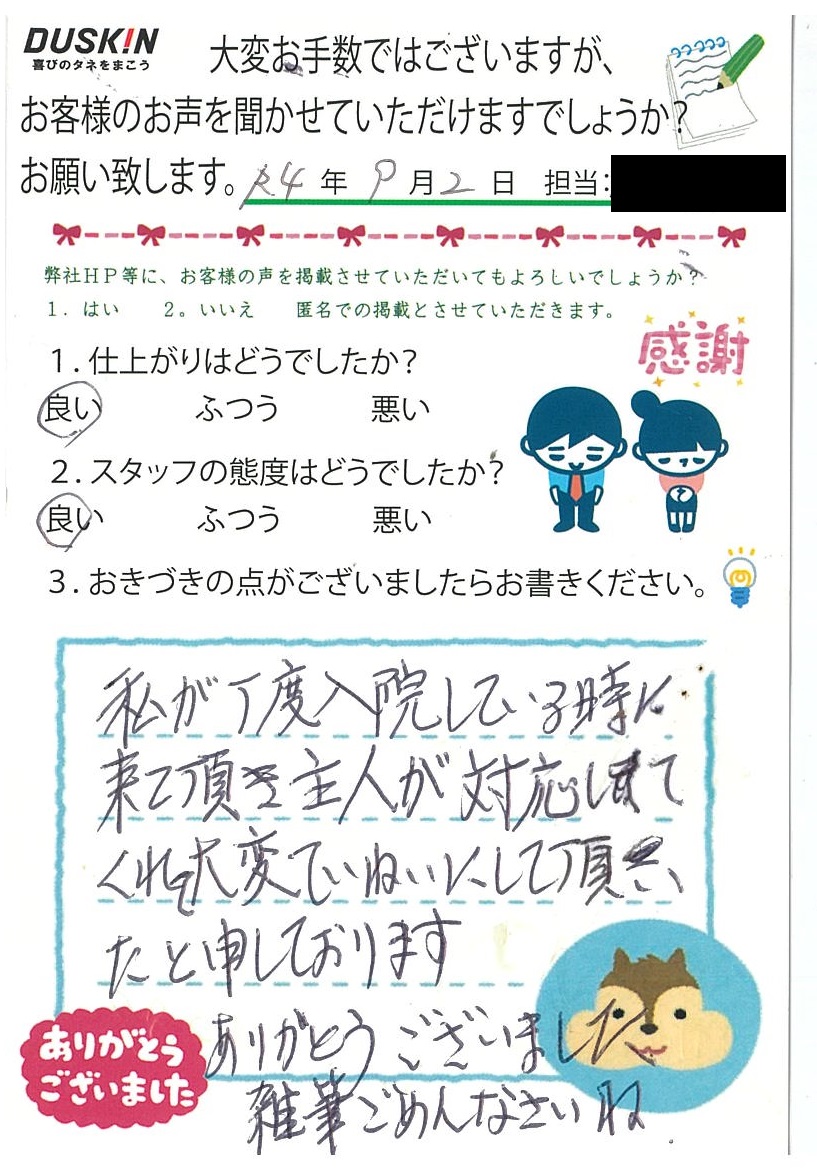 DUSKIN
喜びのタネをまこう
大変お手数ではございますが、
お客様のお声を聞かせていただけますでしょうか?
お願い致します。R4年 9月2日 担当:
弊社HP等に、お客様の声を掲載させていただいてもよろしいでしょうか?
1.はい 2。いいえ 匿名での掲載とさせていただきます。
感謝
1.仕上がりはどうでしたか?
良い ふつう 悪い
2.スタッフの態度はどうでしたか?
良い ふつう 悪い
3.おきづきの点がございましたらお書きください。
私が丁度入院している時に
来て頂き主人が対応して
くれて大変ていねいにして頂い
たと申しております
ありがとうございました
ありがとう
ございました
雑筆ごめんなさいね